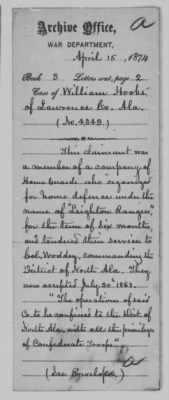 a
Archive Office,
WAR DEPARTMENT,
April 15, 1874
Book 3 Letters sent, page 2
Case of William Hooks,
of Lawrence Co. Ala.
(No. 4349.)
This claimant was
a member of a company of
Home Guards who organized
for home defence under the
name of "Leighton Rangers"
for the term of six months,
and tendered their services to
Col. Woddey, commanding the
District of North Ala. They
were accepted July 30" 1863.
"The operations of said
Co. to be confined to the Dist. of
North Ala. with all the privileges
of Confederate troops"
a
(See Envelope.)